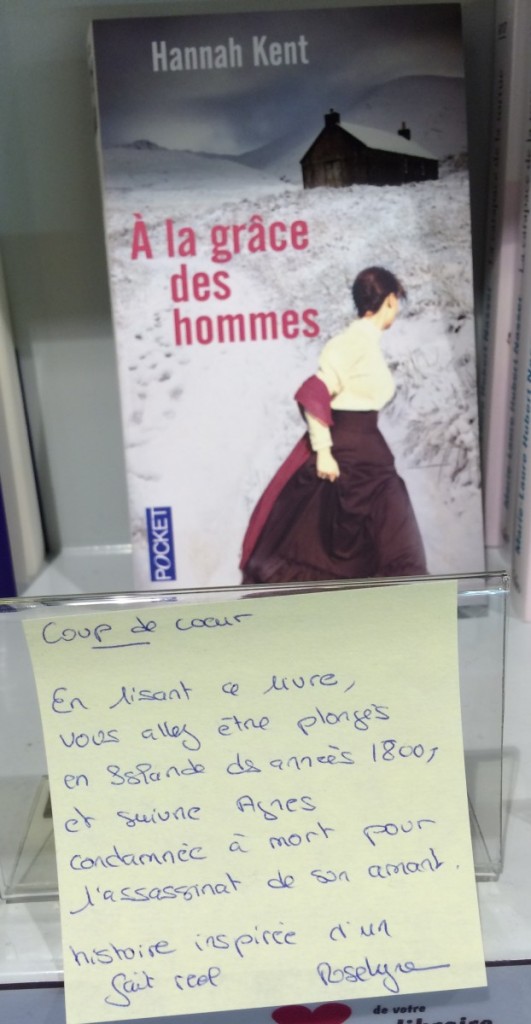 Hannah Kent
À la grâce
des
hommes
POCKET
Coup de coeur
En lisant ce livre,
vous allez être plongés
en Islande ds années 1800,
et suivre Agnes
condamnée à mort pour
l'assassinat de son amant.
histoire inspirée d'un
fait réel Roselyne
de votre
libraire